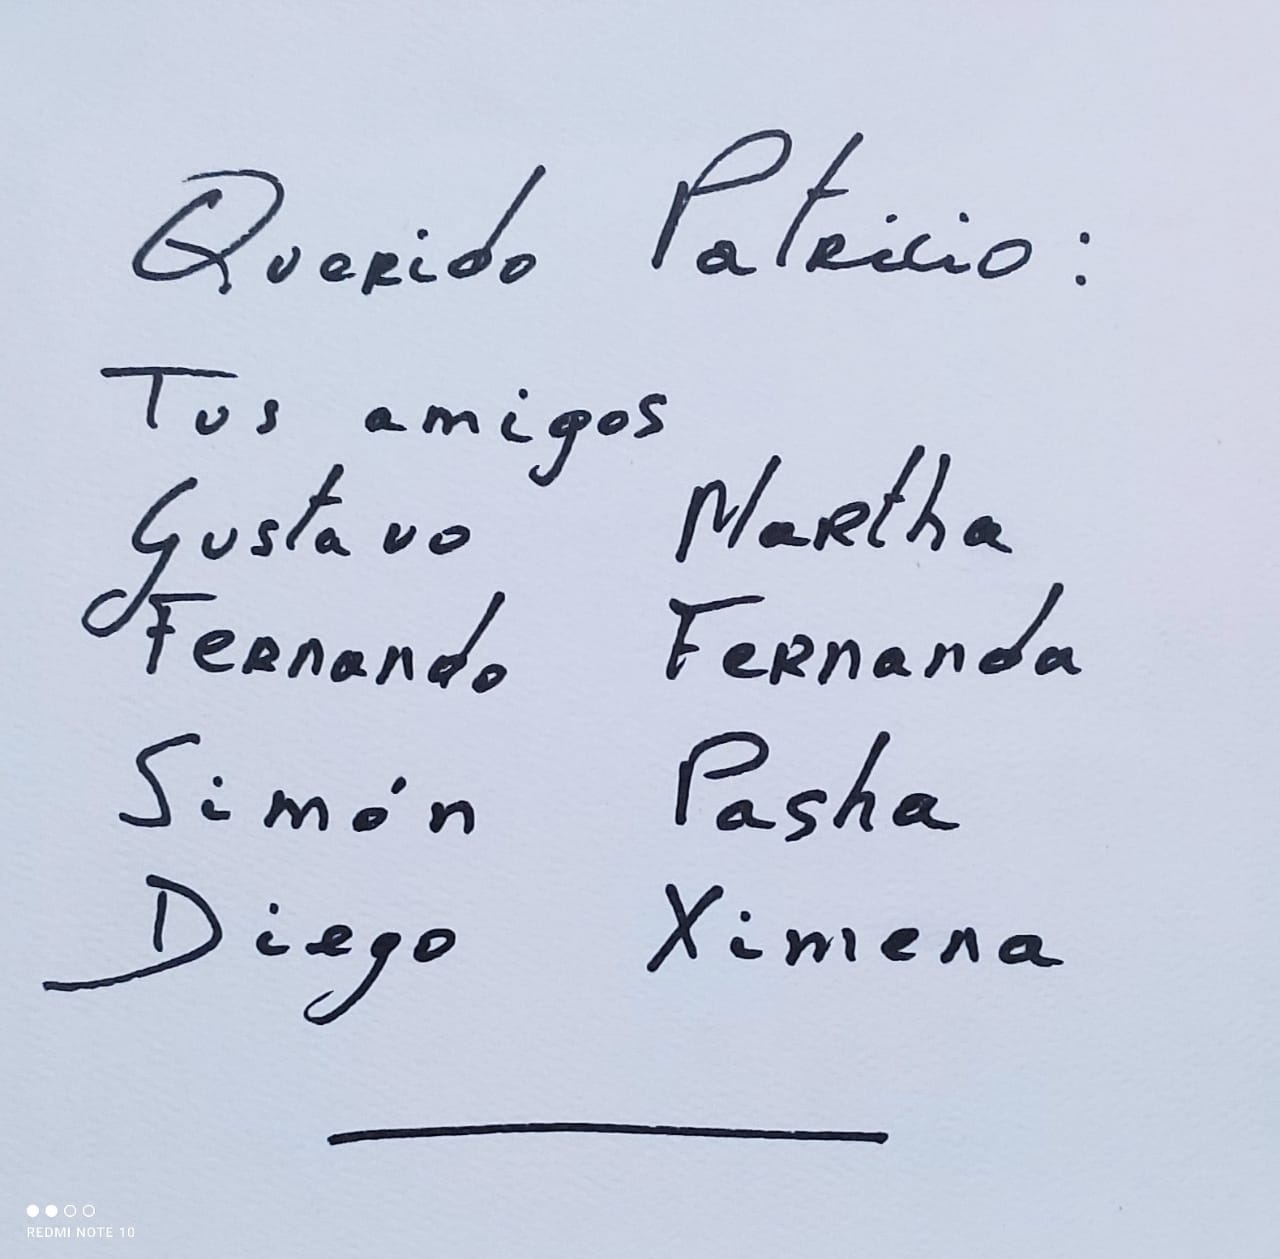 Querido Patricio:
Tus amigos
Gustavo Martha
Fernando Fernanda
Simón Pasha
Diego Ximena
REDMI NOTE 10